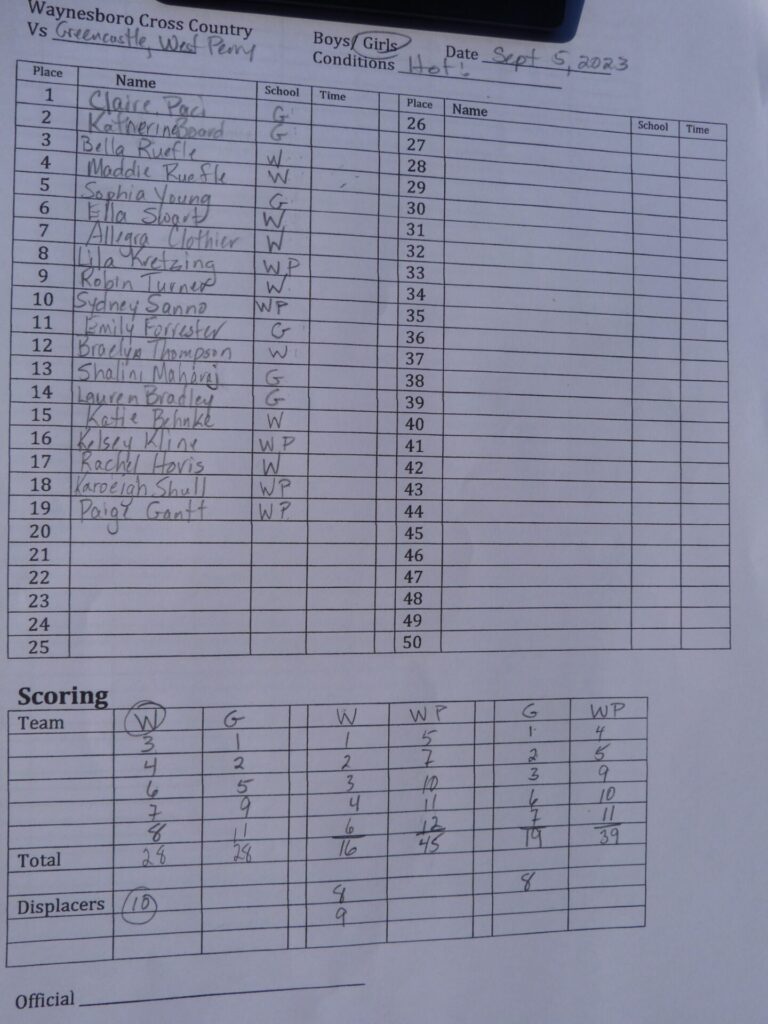 Waynesboro Cross Country
Vs Greencastle, West Perry
Boys/Girls Date Sept 5, 2023
Conditions Hot!
Place Name School Time Place Name School Time
1 Claire Paci G 26
2 Katherine Board G 27
3 Bella Ruefle W 28
4 Maddie Ruefle W 29
5 Sophia Young G 30
6 Ella Swart W 31
7 Allegra Clothier W 32
8 Lila Kretzing WP 33
9 Robin Turner W 34
10 Sydney Sanno WP 35
11 Emily Forrester G 36
12 Braelyn Thompson W 37
13 Shalini Maharaj G 38
14 Lauren Bradley G 39
15 Katie Behnke W 40
16 Kelsey Kline WP 41
17 Rachel Hovis W 42
18 Shull WP 43
19 Paige Gantt WP 44
20 45
21 46
22 47
23 48
24 49
25 50
Scoring
Team W G W WP G WP
3 1 1 5 1 4
4 2 2 7 2 5
6 5 3 10 3 9
7 9 4 11 6 10
8 11 6 12 7 11
Total 28 28 16 45 19 39
Displacers 10 8 8
9
Official